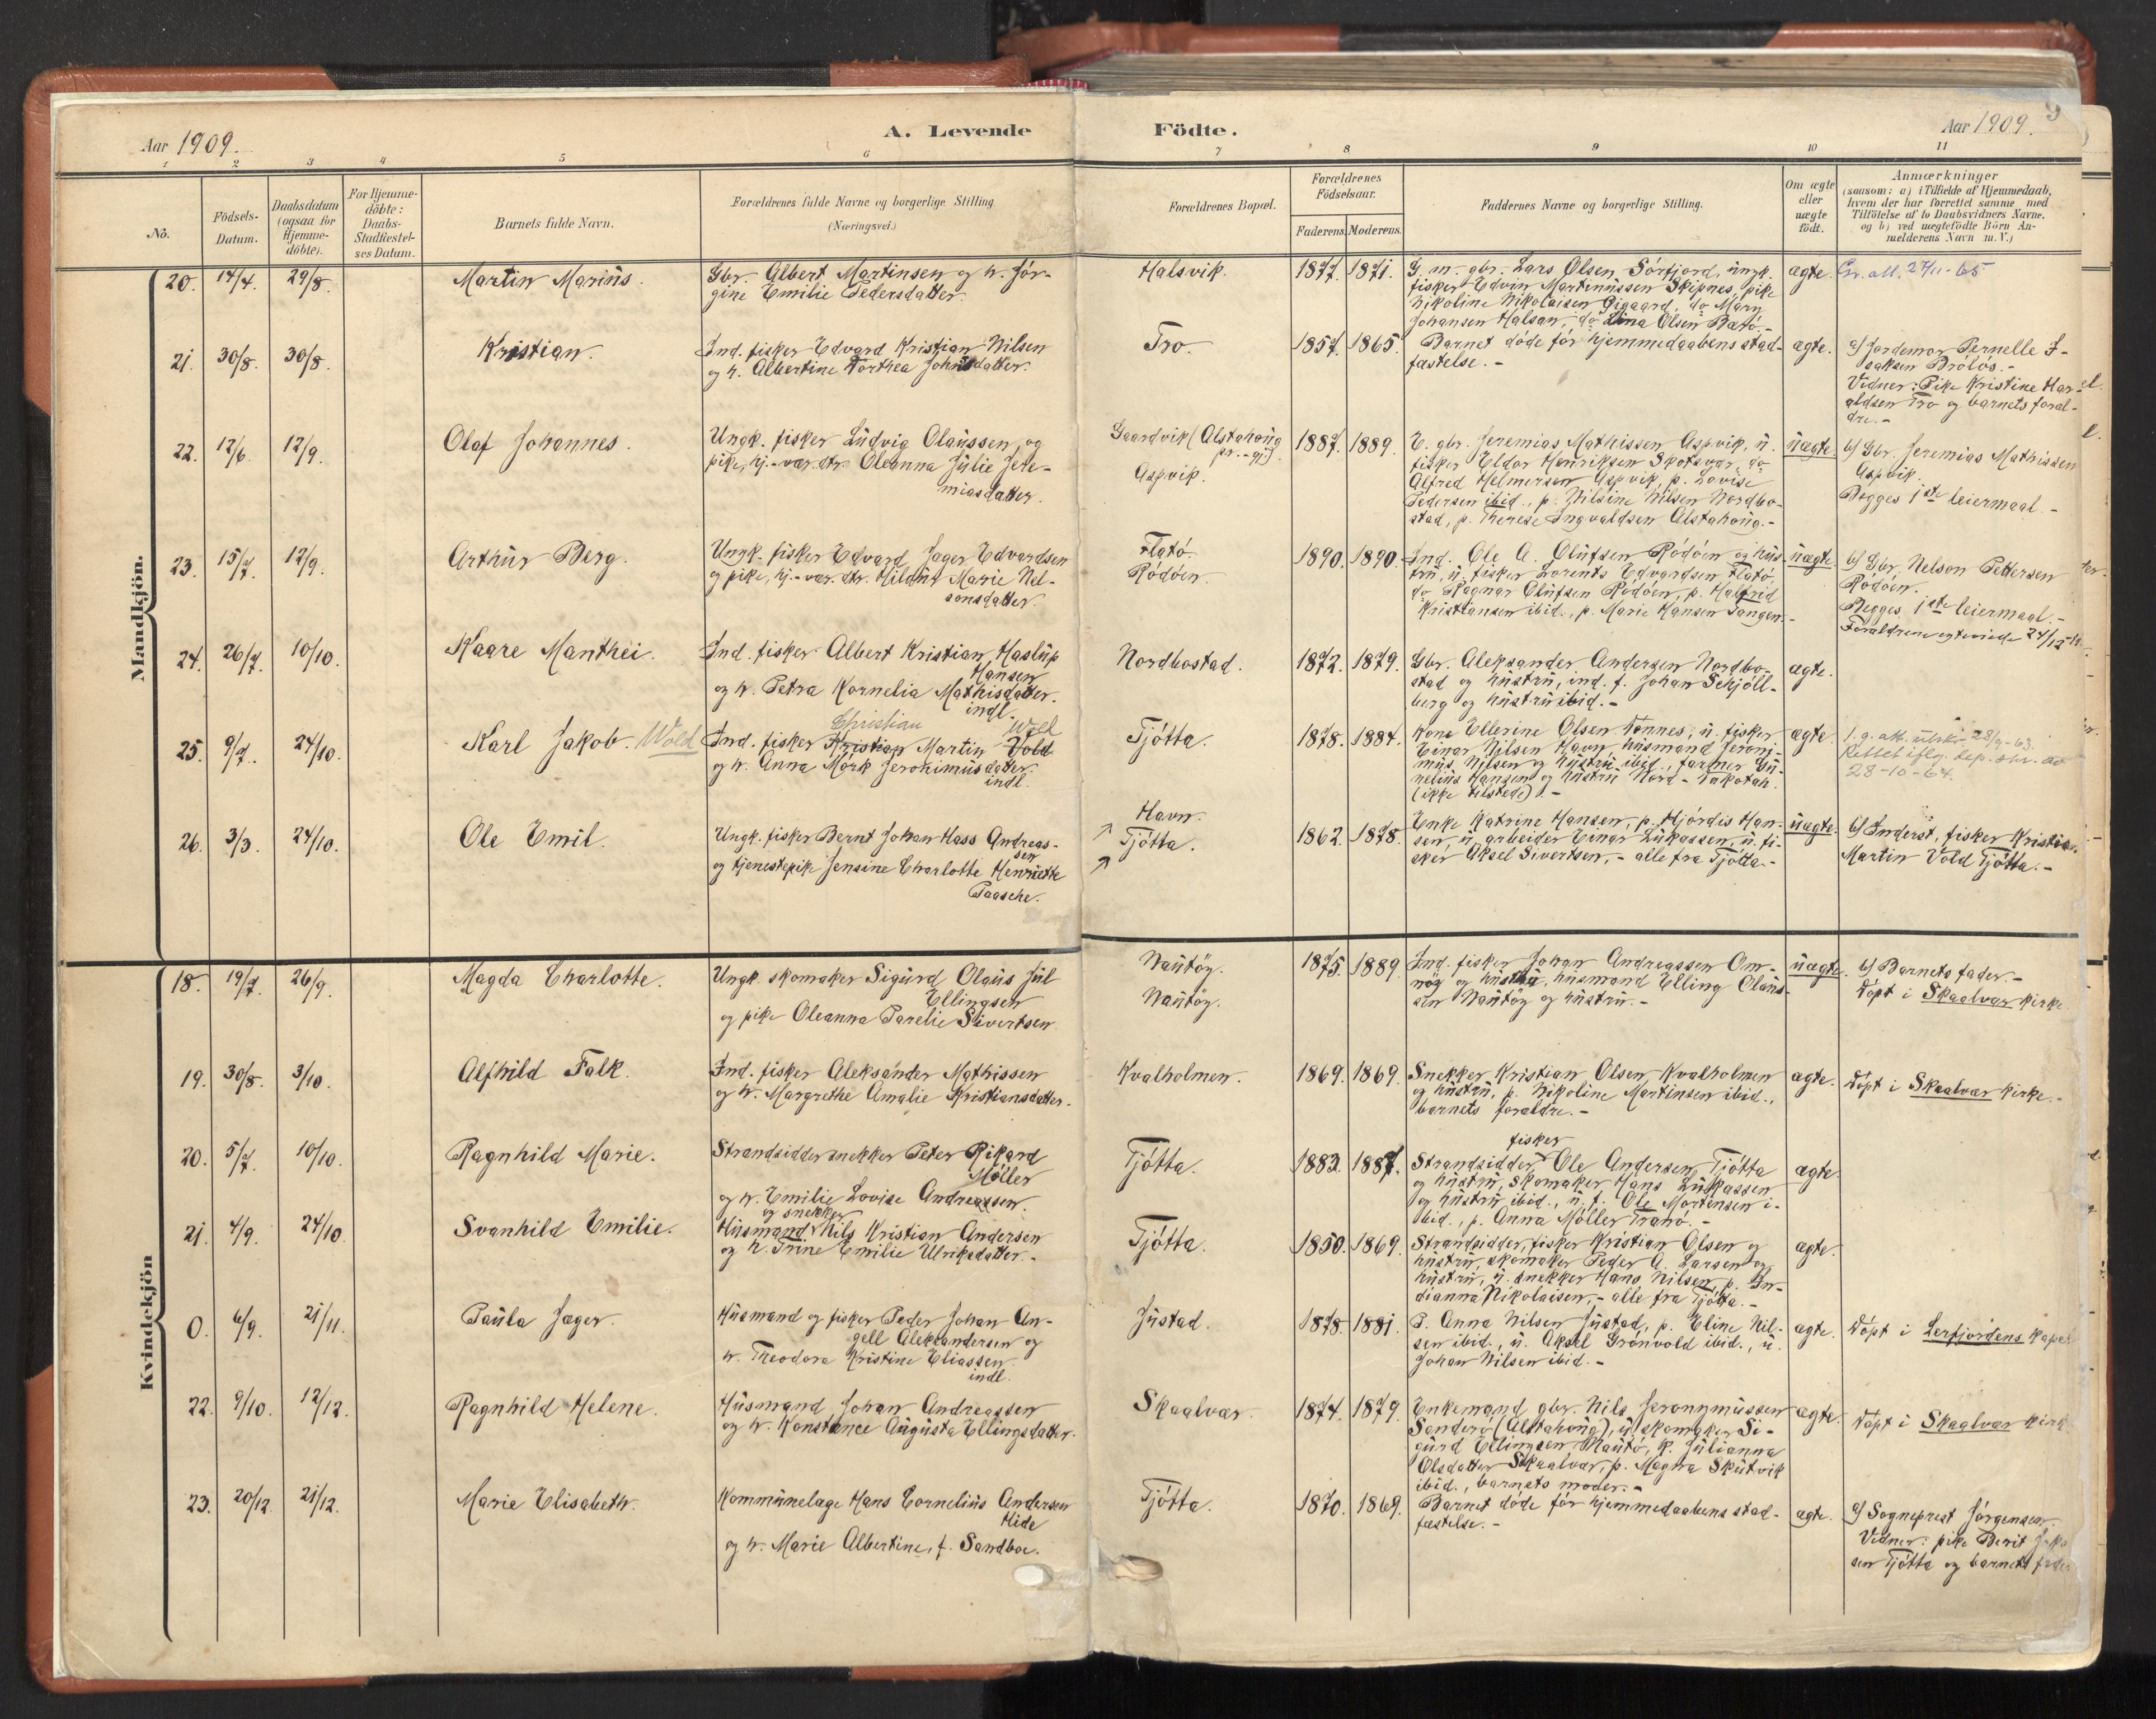 Aar 1909.
A. Levende
Födte.
Aar 1909.
1 2 3 4 5 6 7 8 9 10 11
No.
Födsels-
Datum.
Daabsdatum
(ogsaa for
Hjemme-
döbte).
For Hjemme-
döbte:
Daabs-
Stadfæstel-
ses Datum.
Barnets fulde Navn.
Forældrenes fulde Navne og borgerlige Stilling
(Næringsvei.)
Forældrenes Bopæl.
Forældrenes
Födselsaar.
Faderens.
Moderens.
Faddernes Navne og borgerlige Stilling.
Om ægte
eller
uægte
födt.
Anmærkninger
(saasom: a) i Tilfælde af Hjemmedaab,
hvem der har forrettet samme med
Tilföielse af to Daabsvidners Navne.
og b) ved uægtefödte Börn An-
melderens Navn m. V.)
Mandkjön.
20. 14/4. 29/8. Martin Marius.
Gbr. Albert Martinsen og h. Jör-
gine Emilie Pedersdatter.
Halsvik. 1877. 1871.
G. m. gbr. Lars Olsen Sörfjord, ungk.
fisker Edvin Martinussen Skipnes, pike
Nikoline Nikolaisen Gigaard, do Mary
Johansen Halsan, do Lina Olsen Barö.-
ægte. Gr. att. 27/11-65
21. 30/8. 30/8. Kristian.
Ind. fisker Edvard Kristian Nilsen
og h. Albertine Torthea Johnsdatter.
Tro. 1857. 1865.
Barnet döde för hjemmedaabens stad-
fæstelse.-
ægte.
a) Jordemor Pernelle I-
saksen Brölös.-
Vidner: Pike Kristine Har-
aldsen Tro og barnets foræl-
dre.-
22. 12/6. 12/9. Olaf Johannes.
Ungk. fisker Ludvig Olaussen, og
pike, hj.-vær. dtr. Oleanna Julie Jere-
miasdatter.
Gaardvik (Alstahoug
pr.-gj.)
Aspvik.
1887. 1889.
E. gbr. Jeremias Mathissen Aspvik, u.
fisker Eldor Henriksen Skotsvær, do
Alfred Helmersen Aspvik, p. Lovise
Pedersen ibid., p. Nilsine Nilsen Nordbo-
stad, p. Therese Ingvaldsen Alstahoug.-
uægte.
b) Gbr. Jeremias Mathissen
Aspvik.
Begges 1ste leiermaal.-
23. 15/7. 12/9. Arthur Berg.
Ungk. fisker Edvard Jager Edvardsen
og pike, hj.-vær. dtr. Hilda Marie Nel-
sonsdatter.
Flatö.
Rödöen.
1890. 1890.
Ind. Ole A. Olufsen Rödöen og hus-
tru, u. fisker Lorents Edvardsen Flatö,
do Ragnar Olufsen Rödöen, p. Halfrid
Kristiansen ibid., p. Marie Hansen Tangen.-
uægte
b) Gbr. Nelson Pettersen
Rödöen.
Begges 1ste leiermaal.-
Forældrene egteviede 24/12-11
24. 26/7. 10/10. Kaare Manthei.
Ind. fisker Albert Kristian Haslup
Hansen
og h. Petra Kornelia Mathisdatter.
indl.
Nordbostad. 1872. 1879.
Gbr. Aleksander Andersen Nordbo-
stad og hustru, ind. f. Johan Schjöll-
berg og hustru ibid.-
ægte.
25. 9/7. 24/10. Karl Jakob. Wold
Christian Wold
Ind. fisker Kristian Martin Vold
og h. Anna Mörk Jeronimusdatter.
indl.
Tjötta. 1878. 1884.
Kone Ellerine Olsen Tonnes, u. fisker
Einar Nilsen Havn, husmand Jeroni-
mus Nilsen og hustru ibid., farmer
nelius Hansen og hustru Nord-Dakotah
(ikke tilstede).-
ægte.
1. g. att. utskr. 28/9-63.
Rettet iflg. dep. skr. av
28-10-64.
26. 3/3. 24/10. Ole Emil.
Ungk. fisker Bernt Johan Hass Andreas-
sen
og tjenestepike Jensine Charlotte Henriette
Paasche.
Havn.
Tjötta.
1862. 1878.
Enke Katrine Hansen, p. Hjördis Han-
sen, u. arbeider Einar Lukassen, u. fi-
sker Aksel Sivertsen,- alle fra Tjötta.-
uægte.
b) Inderst, fisker Kristian
Martin Vold Tjötta.-
Kvindekjön
18. 19/7. 26/9. Magda Charlotte.
Ungk. skomaker Sigurd Olaus Jul
Ellingsen
og pike Oleanna Parelie Sivertsen
Nautöy.
Nautöy.
1875. 1889.
Ind. fisker Johan Andreassen Om-
nöy og hustru, husmand Elling Olaus-
sen Nautöy og hustru.-
uægte.
b) Barnets fader.-
Döpt i Skaalvær kirke
19. 30/8. 3/10. Alfhild Falk.
Ind. fisker Aleksander Mathissen
og h. Margrethe Amalie Kristiansdatter.
Kvalholmen. 1869. 1869.
Snekker Kristian Olsen Kvalholmen
og hustru, p. Nikoline Martinsen ibid.,
barnets forældre.-
ægte. Döpt i Skaalvær kirke.-
20. 5/7. 10/10. Ragnhild Marie.
Strandsidder snekker Peter Rikard
Möller
og h. Emilie Lovise Andreassen.
Tjötta. 1883. 1887.
fisker
Strandsidder Ole Andersen Tjötta
og hustru, skomaker Hans Lukassen
og hustru ibid., u. f. Ole Mortensen i-
bid., p. Anna Möller Tranö.-
ægte.
21. 4/9. 24/10. Svanhild Emilie.
og snekker
Husmand Nils Kristian Andersen
og h. Trine Emilie Ulriksdatter.-
Tjötta. 1850. 1869.
Strandsidder, fisker Kristian Olsen og
hustru, skomaker Peder A. Larsen og
hustru, u. snekker Hans Nilsen, p. In-
dianna Nikolaisen,- alle fra Tjötta.-
ægte.
0. 6/9. 21/11. Paula Jæger.
Husmand og fisker Peder Johan An-
gell Aleksandersen og
h. Theodora Kristine Eliassen
indl.
Justad. 1878. 1881.
P. Anna Nilsen Justad, p. Eline Nil-
sen ibid., u. Aksel Grönvold ibid., u.
Johan Nilsen ibid.-
ægte. Döpt i Leirfjordens kapel
22. 9/10. 12/12. Ragnhild Helene.
Husmand Johan Andreassen
og h. Konstance Augusta Ellingsdatter.
Skaalvær. 1874. 1879.
Enkemand gbr. Nils Jeronymussen
Sanderö (Alstahoug), u. skomaker Si-
gurd Ellingsen Nautö, k. Julianna
Olsdatter Skaalvær, p. Magna Skutvik
ibid., barnets moder.-
ægte. Döpt i Skaalvær kirk
23. 20/12. 21/12. Marie Elisabeth.
Kommunelæge Hans Cornelius Andersen
Hide
og h. Marie Albertine, f. Sandboe.
Tjötta. 1870. 1869.
Barnet döde för hjemmedaabens stad-
fæstelse.-
ægte.
a) Sogneprest Jörgensen.
Vidner: pike Berit
sen Tjötta og barnets fader